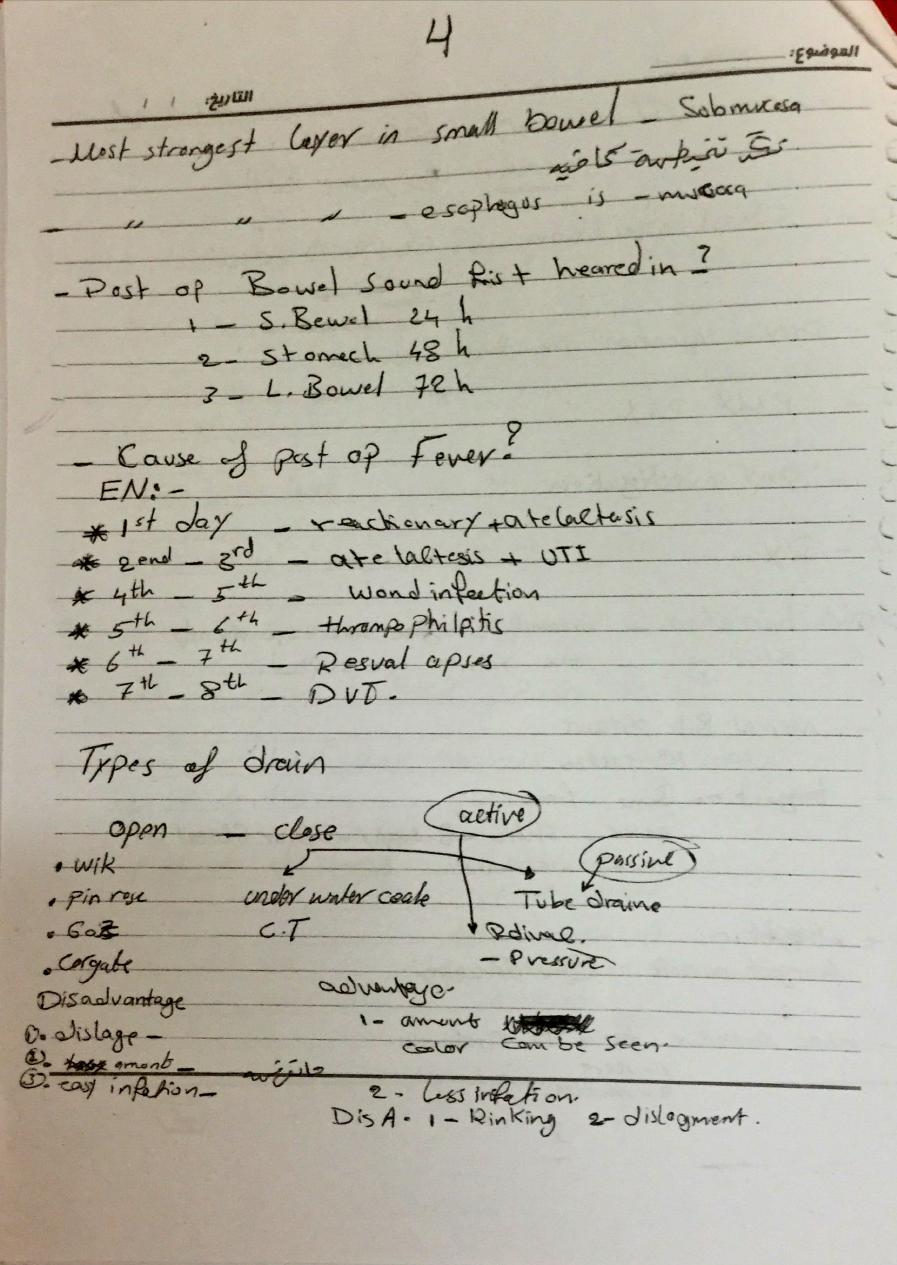 4
الموضوع:
التاريخ: / /
- Most strongest layer in small bowel - Sobmucosa
كافيه
- " " " - esophagus is - mucosa
- Post op Bowel sound fist heared in ?
1 - S. Bewel 24 h
2 - Stomech 48 h
3 - L. Bowel 72 h
- Cause of post op Fever?
EN:-
* 1st day - reactionary + atelaltasis
* 2end - 3rd - atelaltesis + UTI
* 4th - 5th - wond infection
* 5th - 6th - thrompophilpitis
* 6th - 7th - Resval apses
* 7th - 8th - DVT.
Types of drain
open - close active
• wik passive
• pin rose under water coale Tube draine
• Gaz C.T Rdival.
• Corgate - Pressure
Disadvantage advantage-
1- amont
① dislage - color can be seen.
② amont -
③ easy infetion - 2 - Less infetion.
Dis A. 1 - Kinking 2- dislogment.